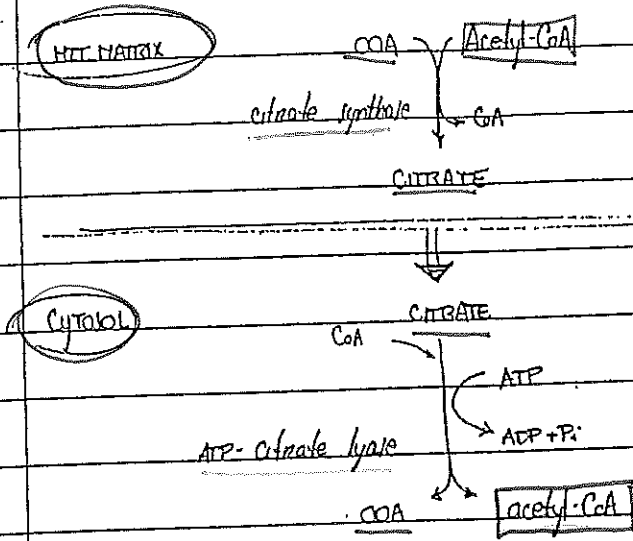 MIT. MATRIX
OOA Acetyl-CoA
citrate synthase CoA
CITRATE
CYTOSOL
CITRATE
CoA
ATP
ADP + Pi
ATP-citrate lyase
OOA acetyl-CoA